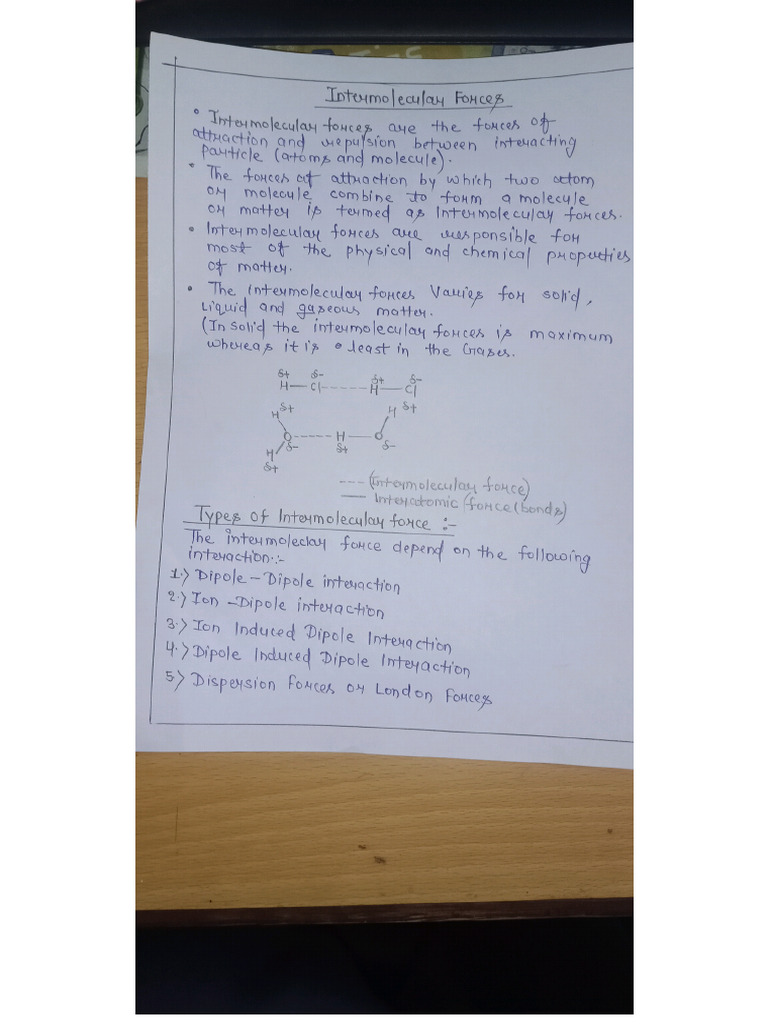 Intermolecular Forces
• Intermolecular forces are the forces of
attraction and repulsion between interacting
particle (atoms and molecule).
• The forces of attraction by which two atom
or molecule combine to form a molecule
or matter is termed as Intermolecular forces.
• Intermolecular forces are responsible for
most of the physical and chemical properties
of matter.
• The intermolecular forces Varies for solid,
Liquid and gaseous matter.
(In solid the intermolecular forces is maximum
whereas it is least in the Gases.
δ+ δ- δ+ δ-
H — Cl ----- H — Cl
H δ+ H δ+
O ----- H — O
δ- δ+ δ-
H
δ+
--- (Intermolecular force)
— Interatomic (force (bonds)
Types of Intermolecular force :-
The intermoleclar force depend on the following
interaction:-
1.) Dipole - Dipole interaction
2.) Ion - Dipole interaction
3.) Ion Induced Dipole Interaction
4.) Dipole Induced Dipole Interaction
5) Dispersion forces or London Forces